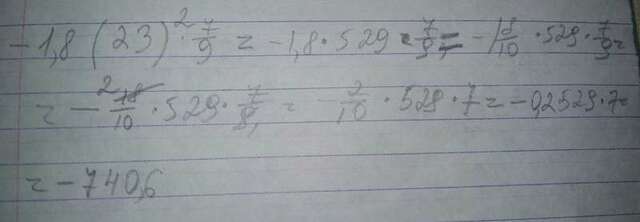 -1,8 (23)² · 7/9 = -1,8 · 529 · 7/9 = -18/10 · 529 · 7/9 =
= - 2 18/10 · 529 · 7/9 1 = 2/10 · 529 · 7 = -0,2 529 · 7 =
= -740,6